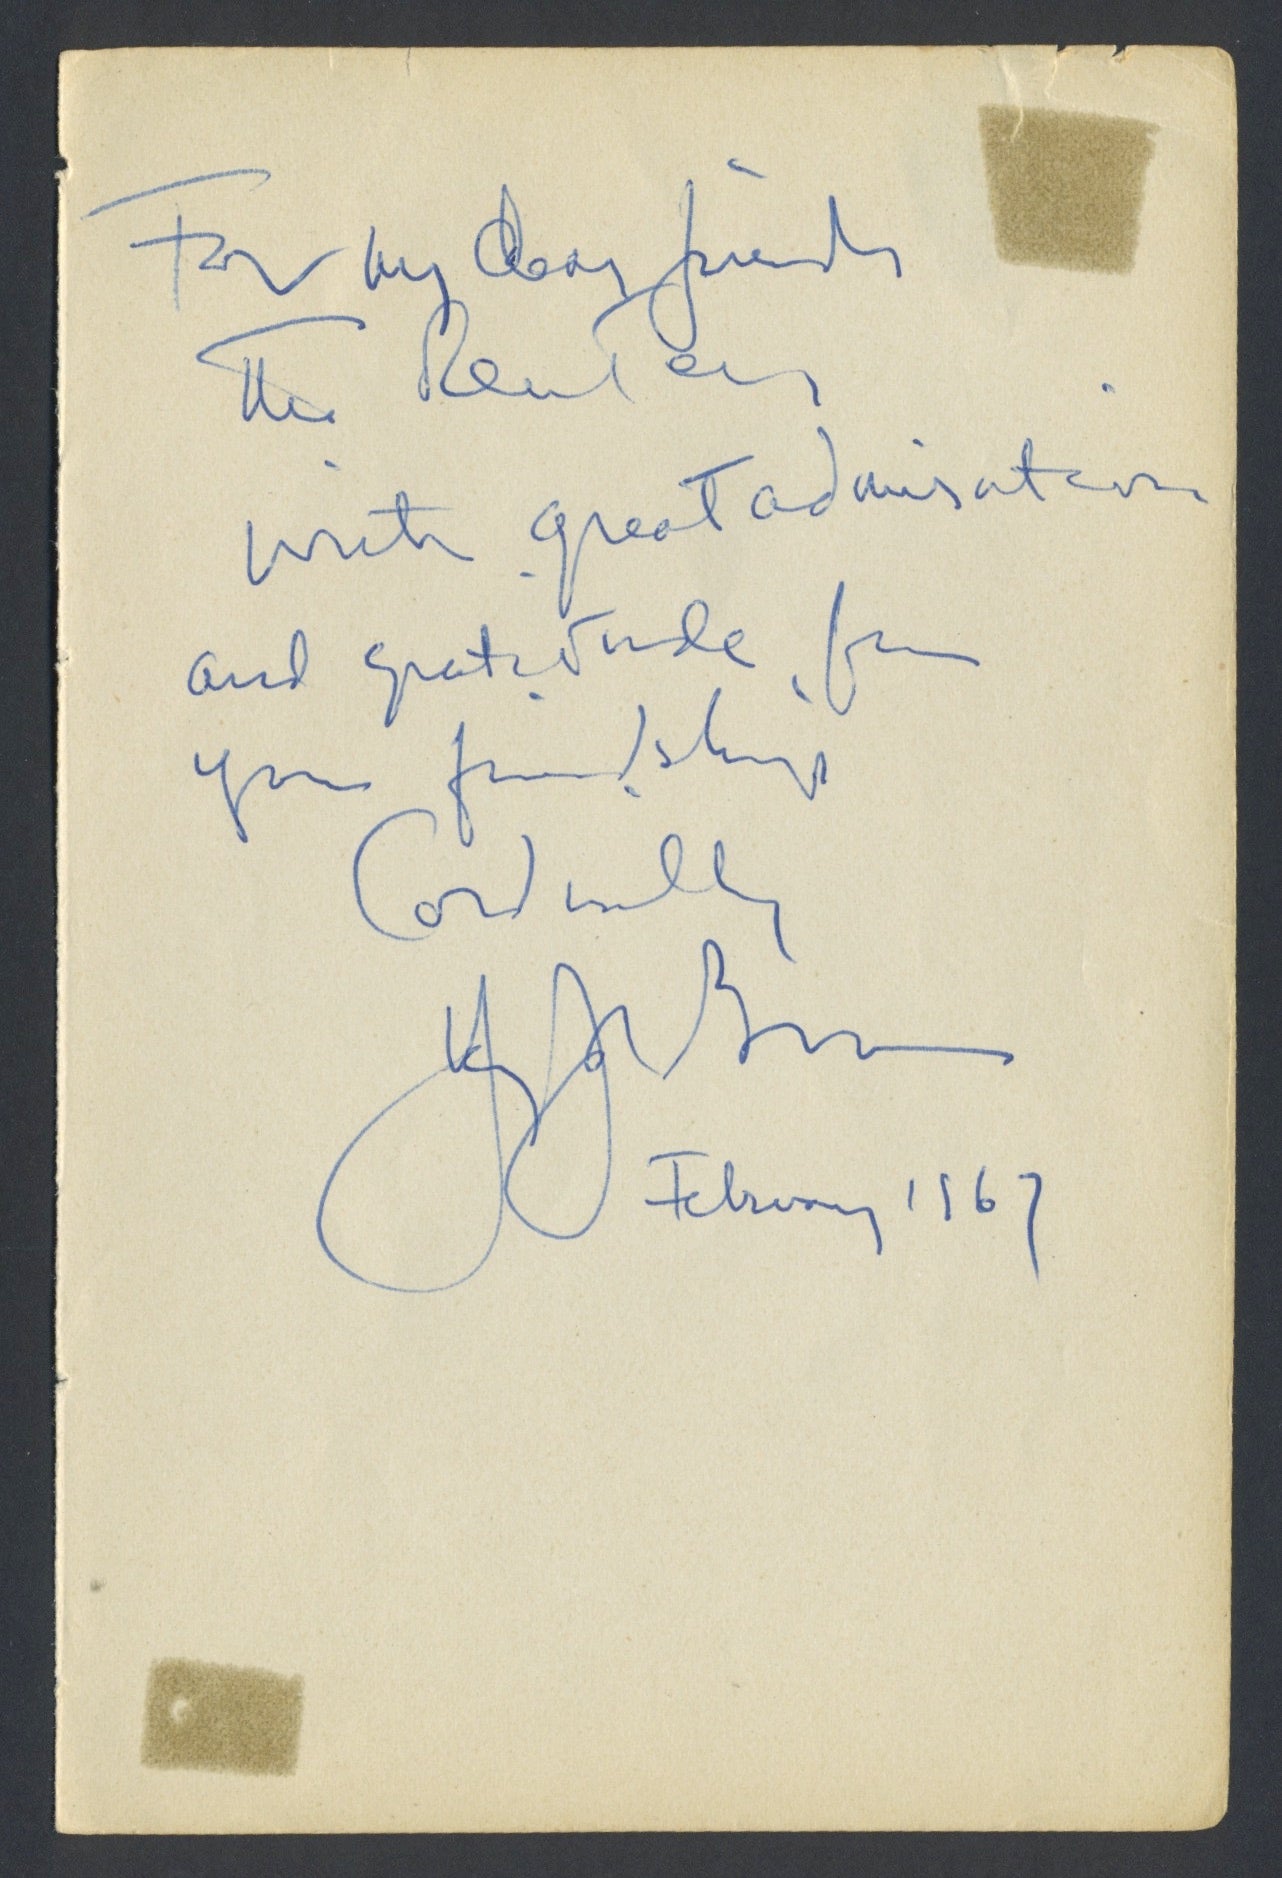 For my dear friends
The Reuters
with great admiration
and gratitude for
your friendship
Cordially
February 1967